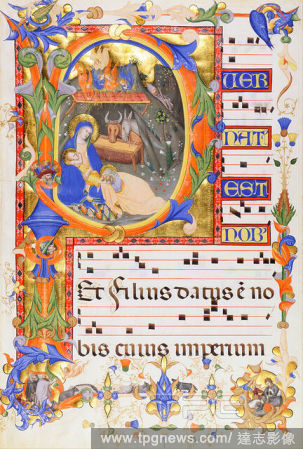 P UER
NAT
EST
NOB'
Et Filius datus ē no
bis cuius imperium
www.tpgnews.com/ 達志影像